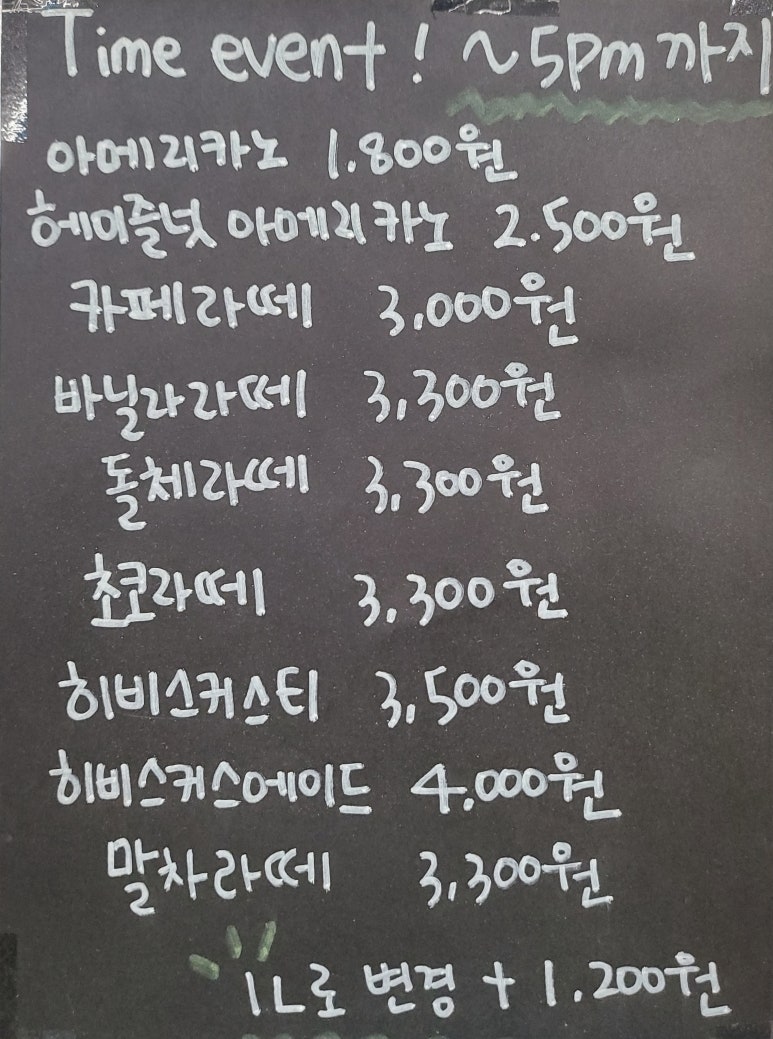 Time event! ~5pm까지
아메리카노 1.800원
헤이즐넛 아메리카노 2.500원
카페라떼 3,000원
바닐라라떼 3,300원
돌체라떼 3,300원
쵸코라떼 3,300원
히비스커스티 3,500원
히비스커스에이드 4,000원
말차라떼 3,300원
1L로 변경 + 1.200원